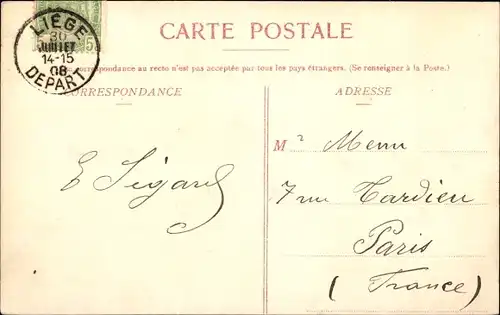 CARTE POSTALE
correspondance au recto n'est pas acceptée par tous les pays étrangers. (Se renseigner à la Poste.)
LIÉGE
30
JUILLET
14-15
08
DEPART
5 5
CORRESPONDANCE
ADRESSE
Mr Menu
7 rue Tardieu
Paris
(France)
E Sigard